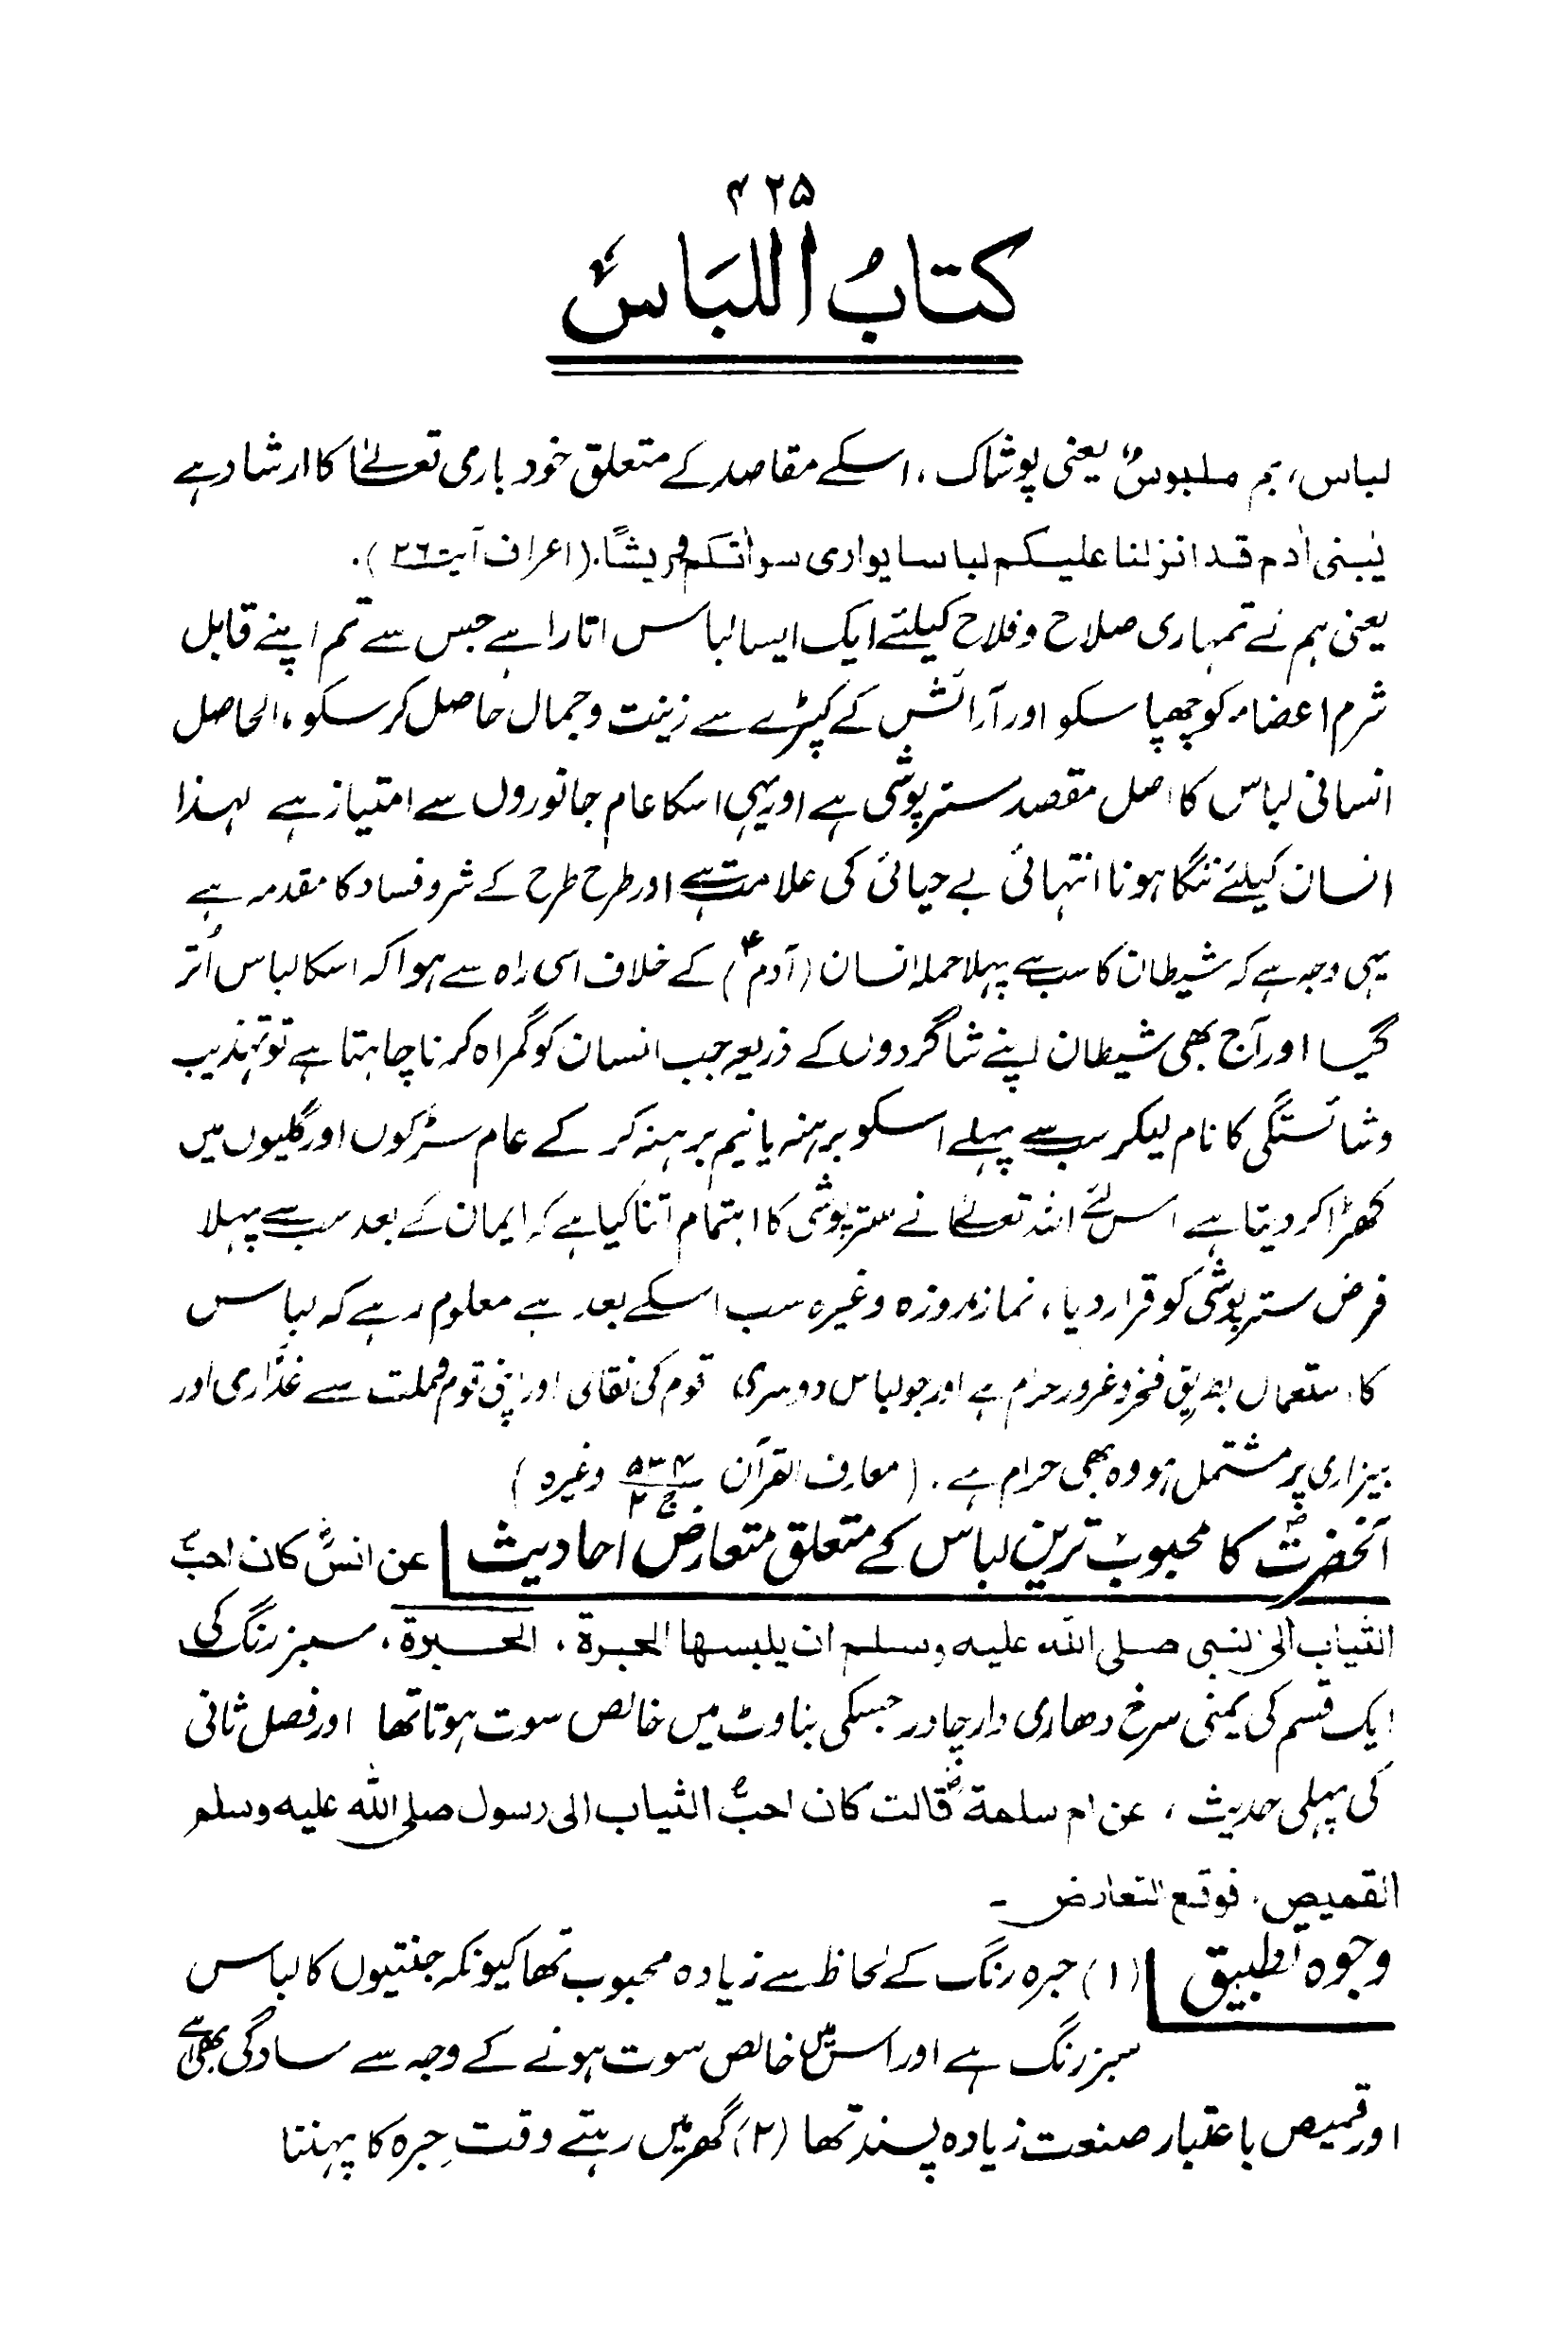 ۴۲۵
کتابُ اللبَاسُ
لباس، بم ملبوسٌ یعنی پوشاک ، اسکے مقاصد کے متعلق خود باری تعالےٰ کا ارشاد ہے
یٰبنی اٰدم قد انزلنا علیکم لباسا یواری سواٰتکم وریشًا. (اعراف آیت ۲۶) .
یعنی ہم نے تمہاری صلاح وفلاح کیلئے ایک ایسا لباس اتارا ہے جس سے تم اپنے قابل
شرم اعضاء کو چھپا سکو اور آرائش کے کپڑے سے زینت وجمال حاصل کر سکو ، الحاصل
انسانی لباس کا اصل مقصد ستر پوشی ہے اور یہی اسکا عام جانوروں سے امتیاز ہے لہذا
انسان کیلئے ننگا ہونا انتہائی بے حیائی کی علامت ہے اور طرح طرح کے شر وفساد کا مقدمہ ہے
یہی وجہ ہے کہ شیطان کا سب سے پہلا حملہ انسان (آدمؑ) کے خلاف اسی راہ سے ہوا کہ اسکا لباس اُتر
گیا اور آج بھی شیطان اپنے شاگردوں کے ذریعہ جب انسان کو گمراہ کرنا چاہتا ہے تو تہذیب
وشائستگی کا نام لیکر سب سے پہلے اسکو برہنہ یا نیم برہنہ کر کے عام سڑکوں اور گلیوں میں
کھڑا کر دیتا ہے اس لئے اللہ تعالےٰ نے ستر پوشی کا اہتمام اتنا کیا ہے کہ ایمان کے بعد سب سے پہلا
فرض ستر پوشی کو قرار دیا ، نماز روزہ وغیرہ سب اسکے بعد ہے معلوم رہے کہ لباس
کا استعمال بطریق فخر وغرور حرام ہے اور جو لباس دوسری قوم کی نقالی اور اپنی قوم وملت سے غدّاری اور
بیزاری پر مشتمل ہو وہ بھی حرام ہے . (معارف القرآن ۵۳۴ ج ۲ وغیرہ)
آنحضرتؐ کا محبوب ترین لباس کے متعلق متعارض احادیث عن انسؓ کان احبُّ
الثیاب الی النبی صلی اللہ علیہ وسلم ان یلبسھا الحبرة ، الحبرة ، سبز رنگ کی
ایک قسم کی یمنی سرخ دھاری دار چادر جسکی بناوٹ میں خالص سوت ہوتا تھا اور فصل ثانی
کی پہلی حدیث ، عن ام سلمةؓ قالت کان احبُّ الثیاب الی رسول صلی اللہ علیہ وسلم
القمیص ، فوقع التعارض ۔
وجوہ تطبیق (۱) حبرہ رنگ کے لحاظ سے زیادہ محبوب تھا کیونکہ جنتیوں کا لباس
سبز رنگ ہے اور اس میں خالص سوت ہونے کے وجہ سے سادگی بھی ہے
اور قمیص باعتبار صنعت زیادہ پسند تھا (۲) گھر میں رہتے وقت حِبرہ کا پہننا